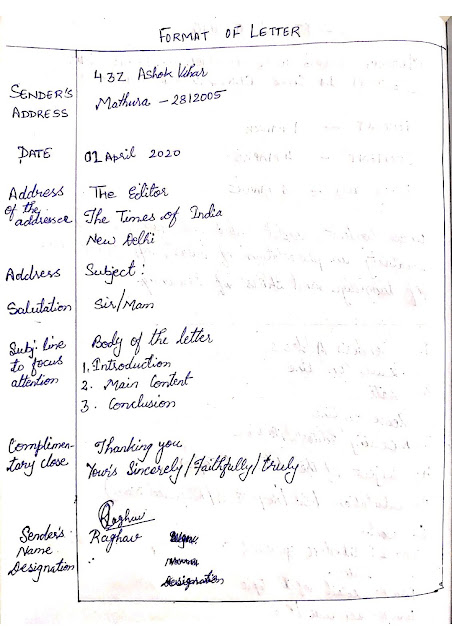 FORMAT OF LETTER
SENDER'S ADDRESS
432 Ashok Vihar
Mathura - 2812005
DATE
01 April 2020
Address of the addressee
The Editor
The Times of India
New Delhi
Address
Subject:
Salutation
Sir/Mam
Subj: line to focus attention
Body of the letter
1. Introduction
2. Main Content
3. Conclusion
Complimentary close
Thanking you
Yours Sincerely/Faithfully/truly
Raghav
Sender's Name Designation
Raghav
Designation